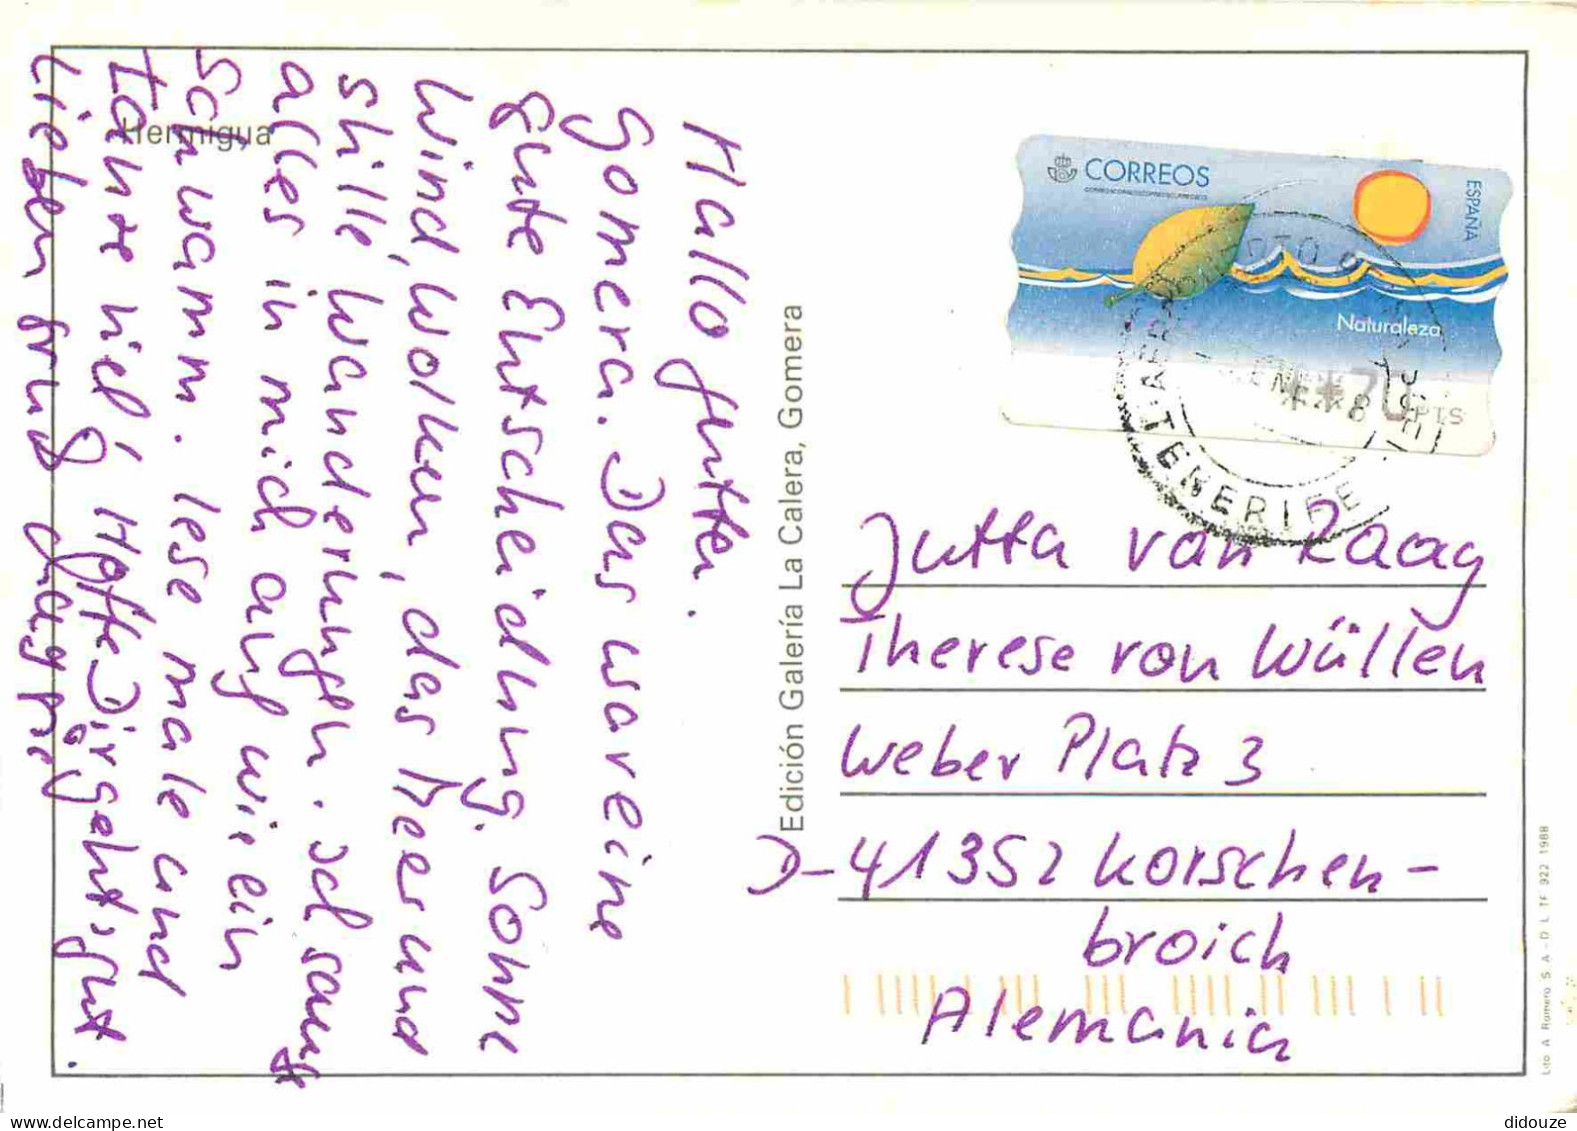 Hermigua
Hallo Jutta.
Gomera. Das war eine
gute Entscheidung. Sonne
Wind, Wolken, das Meer und
stille Wanderungen. Ich sauge
alles in mich auf wie ein
Schwamm. lese male und
fahre viel! Hoffe Dir geht's gut.
Lieben Gruß
Edición Galería La Calera, Gomera
CORREOS
ESPAÑA
Naturaleza
**70 PTS
TENERIFE
Jutta van Raay
Therese von Wüllen
Weber Platz 3
D-41352 Korschen-
broich
Alemania
Lito A Romero S A - D L TF 922 1988
didouze